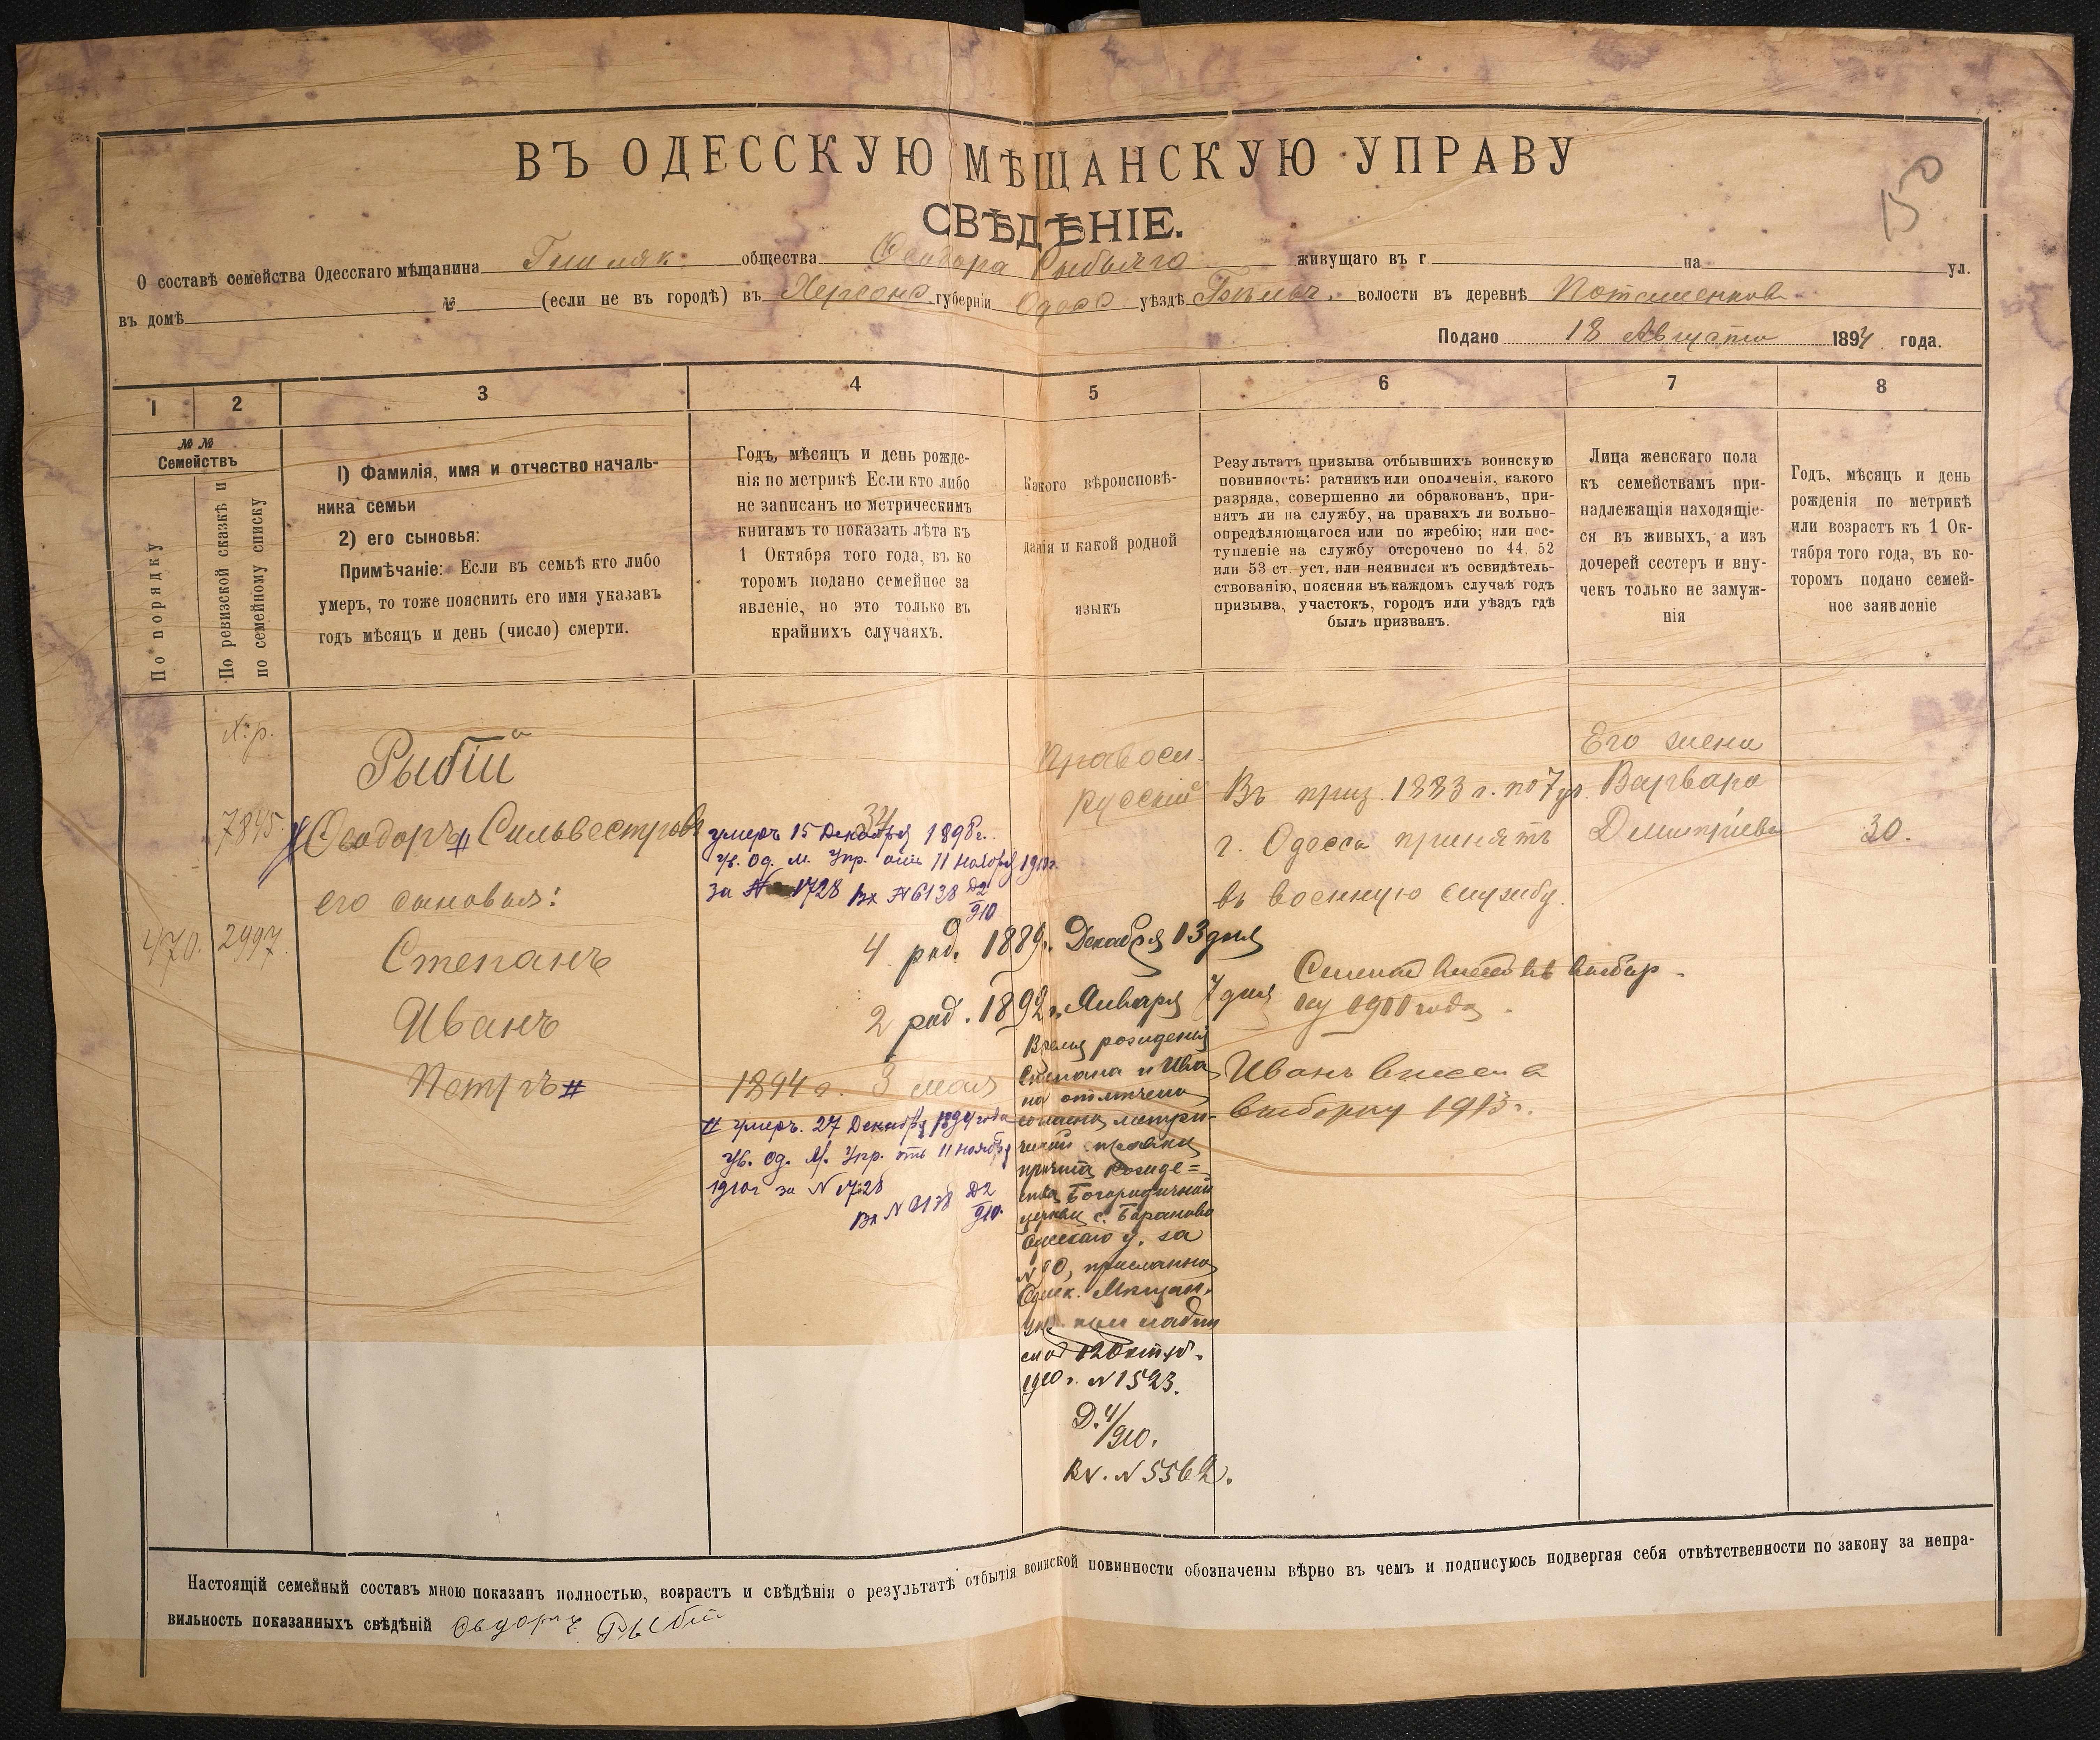 150
ВЪ ОДЕССКУЮ МѢЩАНСКУЮ УПРАВУ
СВѢДѢНІЕ.
О составѣ семейства Одесскаго мѣщанина общества Ѳеодора Рыбьяго живущаго въ г на ул.
въ домѣ № (если не въ городѣ) въ Херсонс губерніи Одесс уѣздѣ волости въ деревнѣ
Подано 18 Августа 1894 года.
1 2 3 4 5 6 7 8
№ №
Семействъ
По порядку
По ревизской сказкѣ и
по семейному списку
1) Фамилія, имя и отчество началь-
ника семьи
2) его сыновья:
Примѣчаніе: Если въ семьѣ кто либо
умеръ, то тоже пояснить его имя указавъ
годъ мѣсяцъ и день (число) смерти.
Годъ, мѣсяцъ и день рожде-
нія по метрикѣ Если кто либо
не записанъ по метрическимъ
книгамъ то показать лѣта къ
1 Октября того года, въ ко
торомъ подано семейное за
явленіе, но это только въ
крайнихъ случаяхъ.
Какого вѣроисповѣ-
данія и какой родной
языкъ
Результатъ призыва отбывшихъ воинскую
повинность: ратникъ или ополченія, какого
разряда, совершенно ли обракованъ, при-
нятъ ли на службу, на правахъ ли вольно-
опредѣляющагося или по жребію; или пос-
тупленіе на службу отсрочено по 44, 52
или 53 ст. уст. или неявился къ освидѣтель-
ствованію, поясняя въ каждомъ случаѣ годъ
призыва, участокъ, городъ или уѣздъ гдѣ
былъ призванъ.
Лица женскаго пола
къ семействамъ при-
надлежащія находящіе-
ся въ живыхъ, а изъ
дочерей сестеръ и вну-
чекъ только не замуж-
нія
Годъ, мѣсяцъ и день
рожденія по метрикѣ
или возрастъ къ 1 Ок-
тября того года, въ ко-
торомъ подано семей-
ное заявленіе
Х.р.
7845.
470. 2997.
Рыбій
Ѳеодоръ # Сильвестровъ
его сыновья:
Степанъ
Иванъ
Петръ #
34
умеръ 15 Декабря 1898г.
ув. Од. М. Упр. отъ 11 Ноября 1910г.
за № 1728 Вх №6138 Д2/910
4 род. 1889г. Декабря 13 дня
2 род. 1892г. Января 7 дня
1894 г. 3 мая
# умеръ 27 Декабря 1894 года
ув. Од. М. Упр. отъ 11 ноября
1910г за № 1728
Вх № 6138 Д2/910.
Православ.
Русскій
Время рожденія
Степана и Ива
на отмѣчено
согласно метри-
ческой справки
причта Рожде=
ства Богородичной
церкви с. Баранова
Одесскаго у. за
№ 90, присланной
Одесск. Мѣщан.
Упр. при надпи
си от 12 Октяб.
1910 г. № 1523.
Д. 4/910.
Вх. № 5562.
Въ приз. 1883 г. по 7 уч.
г. Одесса принятъ
въ военную службу.
Степанъ внесенъ въ выбор-
ку 1911 года.
Иванъ внесен в
выборку 1913 г.
Его жена
Варвара
Дмитріева
30.
Настоящій семейный составъ мною показанъ полностью, возрастъ и свѣдѣнія о результатѣ отбытія воинской повинности обозначены вѣрно въ чемъ и подписуюсь подвергая себя отвѣтственности по закону за непра-
вильность показанныхъ свѣдѣній Ѳедоръ Рыбій